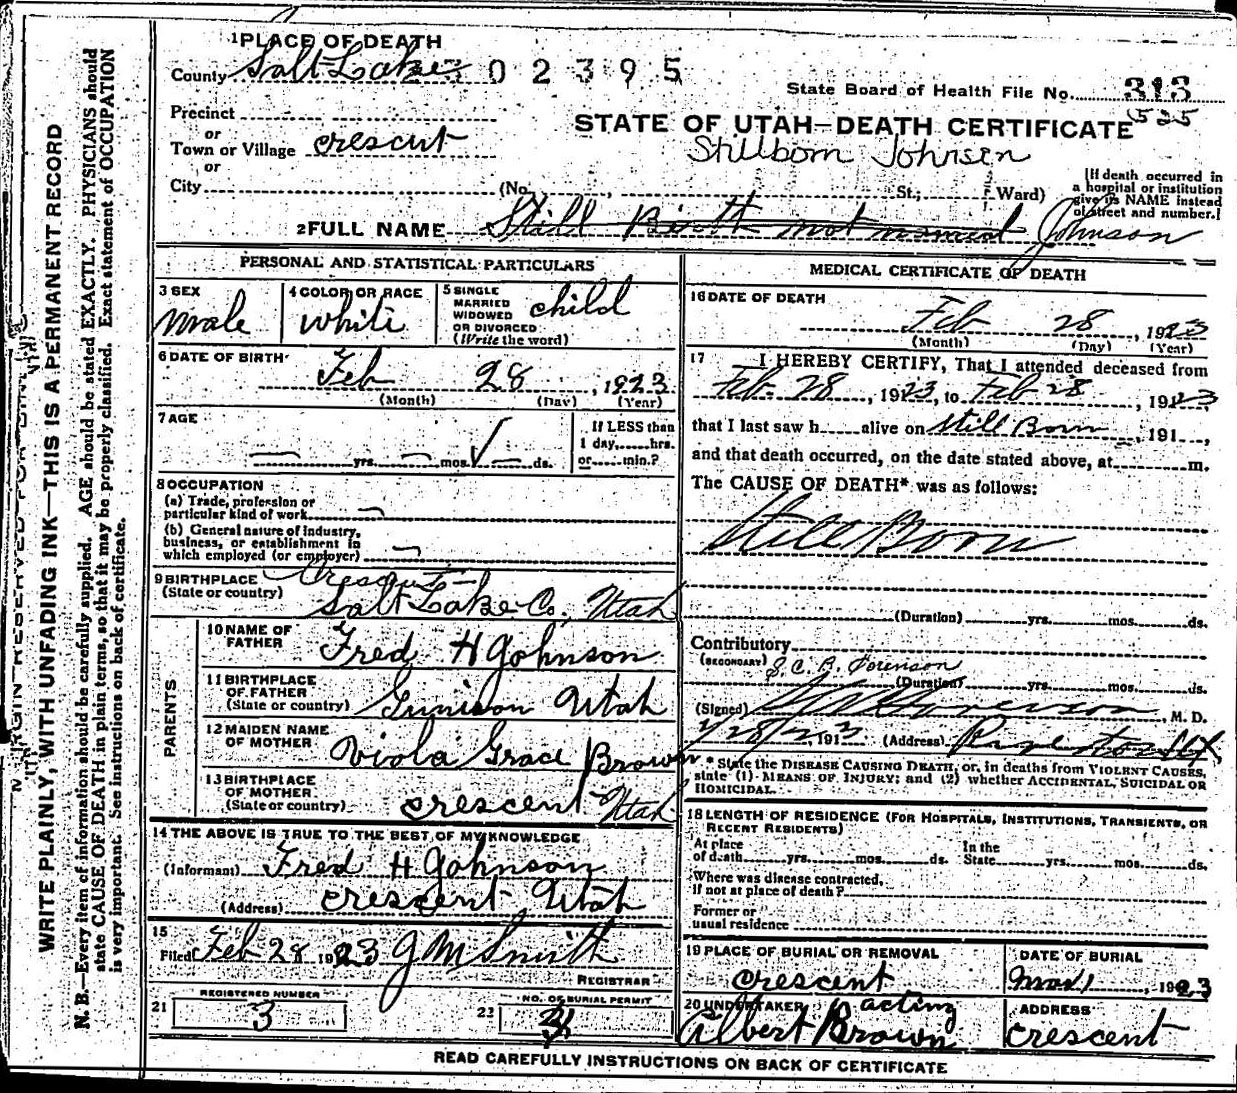 1 PLACE OF DEATH
County Salt Lake 2302395
State Board of Health File No. 313
525
Precinct
or
Town or Village crescent
or
City (No. St.; Ward)
STATE OF UTAH—DEATH CERTIFICATE
Stillborn Johnsen
[If death occurred in
a hospital or institution
give its NAME instead
of street and number.]
2 FULL NAME Still Birth not named Johnson
PERSONAL AND STATISTICAL PARTICULARS
3 SEX
male
4 COLOR OR RACE
white
5 SINGLE
MARRIED
WIDOWED
OR DIVORCED
(Write the word)
child
6 DATE OF BIRTH
Feb 28, 1923
(Month) (Day) (Year)
7 AGE
— yrs. — mos. — ds.
If LESS than
1 day, hrs.
or min.?
8 OCCUPATION
(a) Trade, profession or
particular kind of work —
(b) General nature of industry,
business, or establishment in
which employed (or employer) —
9 BIRTHPLACE
(State or country)
Crescent—
Salt Lake Co, Utah
PARENTS
10 NAME OF
FATHER
Fred H Johnson
11 BIRTHPLACE
OF FATHER
(State or country)
Gunison Utah
12 MAIDEN NAME
OF MOTHER
Viola Grace Brown
13 BIRTHPLACE
OF MOTHER
(State or country)
crescent Utah
14 THE ABOVE IS TRUE TO THE BEST OF MY KNOWLEDGE
(Informant) Fred H Johnson
(Address) crescent Utah
15
Filed Feb 28 1923 J M Smith
REGISTRAR
21 REGISTERED NUMBER
3
22 NO. OF BURIAL PERMIT
MEDICAL CERTIFICATE OF DEATH
16 DATE OF DEATH
Feb 28, 1923
(Month) (Day) (Year)
17 I HEREBY CERTIFY, That I attended deceased from
Feb. 28, 1923, to Feb 28, 1923
that I last saw h alive on Still Born, 191,
and that death occurred, on the date stated above, at m.
The CAUSE OF DEATH* was as follows:
Still Born
(Duration) yrs. mos. ds.
Contributory
(SECONDARY) S. C. B. Sorenson
(Duration) yrs. mos. ds.
(Signed) Sorenson, M. D.
2/28/23, 191 (Address)
* State the DISEASE CAUSING DEATH, or, in deaths from VIOLENT CAUSES,
state (1) MEANS OF INJURY; and (2) whether ACCIDENTAL, SUICIDAL OR
HOMICIDAL.
18 LENGTH OF RESIDENCE (FOR HOSPITALS, INSTITUTIONS, TRANSIENTS, OR
RECENT RESIDENTS)
At place
of death yrs. mos. ds. In the
State yrs. mos. ds.
Where was disease contracted,
if not at place of death?
Former or
usual residence
19 PLACE OF BURIAL OR REMOVAL
crescent
DATE OF BURIAL
Mar 1, 1923
20 UNDERTAKER acting
Albert Brown
ADDRESS
crescent
READ CAREFULLY INSTRUCTIONS ON BACK OF CERTIFICATE
WRITE PLAINLY, WITH UNFADING INK—THIS IS A PERMANENT RECORD
N. B.—Every item of information should be carefully supplied. AGE should be stated EXACTLY. PHYSICIANS should
state CAUSE OF DEATH in plain terms, so that it may be properly classified. Exact statement of OCCUPATION
is very important. See instructions on back of certificate.